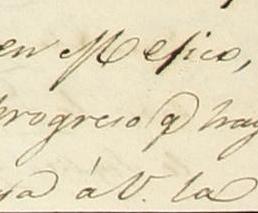 en Mejico,
progreso q hay
á V. la